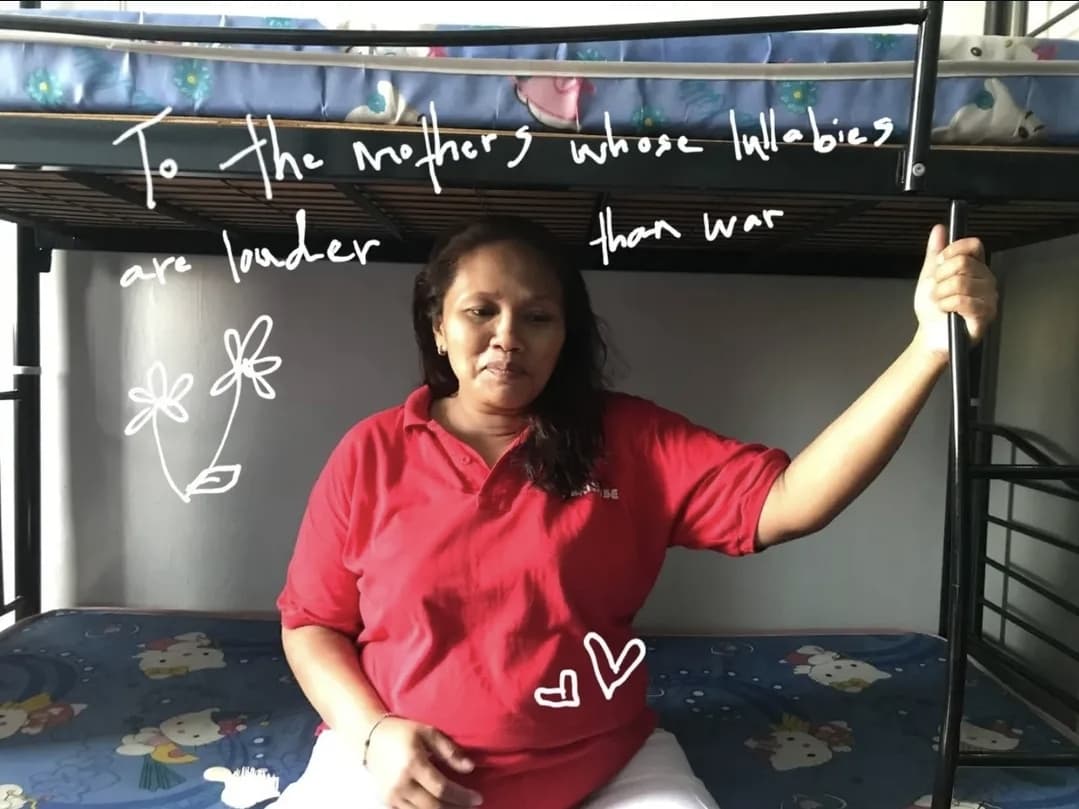 To the mothers whose lullabies
are louder than war